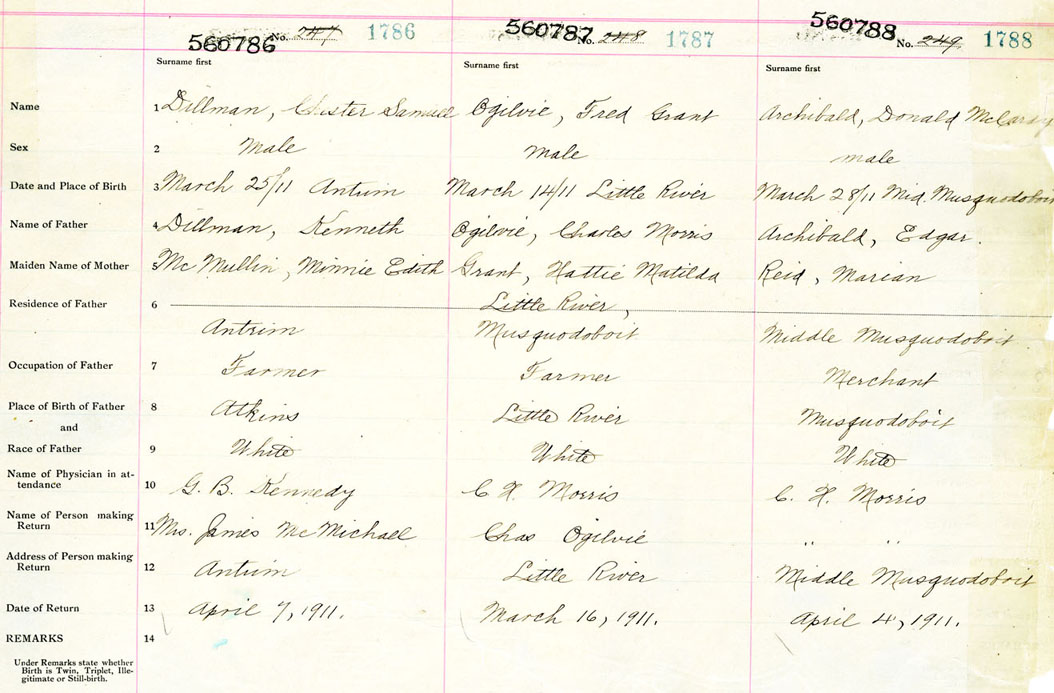 560786 No. 247 1786 560787 No. 248 1787 560788 No. 249 1788
Surname first Surname first Surname first
Name 1 Dillman, Chester Samuel Ogilvie, Fred Grant Archibald, Donald McCurdy
Sex 2 Male Male male
Date and Place of Birth 3 March 25/11 Antrim March 14/11 Little River March 28/11 Mid. Musquodoboit
Name of Father 4 Dillman, Kenneth Ogilvie, Charles Morris Archibald, Edgar.
Maiden Name of Mother 5 Mc Mullin, Minnie Edith Grant, Hattie Matilda Reid, Marian
Residence of Father 6 Little River,
Antrim Musquodoboit Middle Musquodoboit
Occupation of Father 7 Farmer Farmer Merchant
Place of Birth of Father 8 Atkins Little River Musquodoboit
and
Race of Father 9 White White White
Name of Physician in at-
tendance 10 G. B. Kennedy C H Morris C. H. Morris
Name of Person making
Return 11 Mrs. James McMichael Chas Ogilvie " "
Address of Person making
Return 12 Antrim Little River Middle Musquodoboit
Date of Return 13 April 7, 1911. March 16, 1911. April 4, 1911.
REMARKS 14
Under Remarks state whether
Birth is Twin, Triplet, Ille-
gitimate or Still-birth.